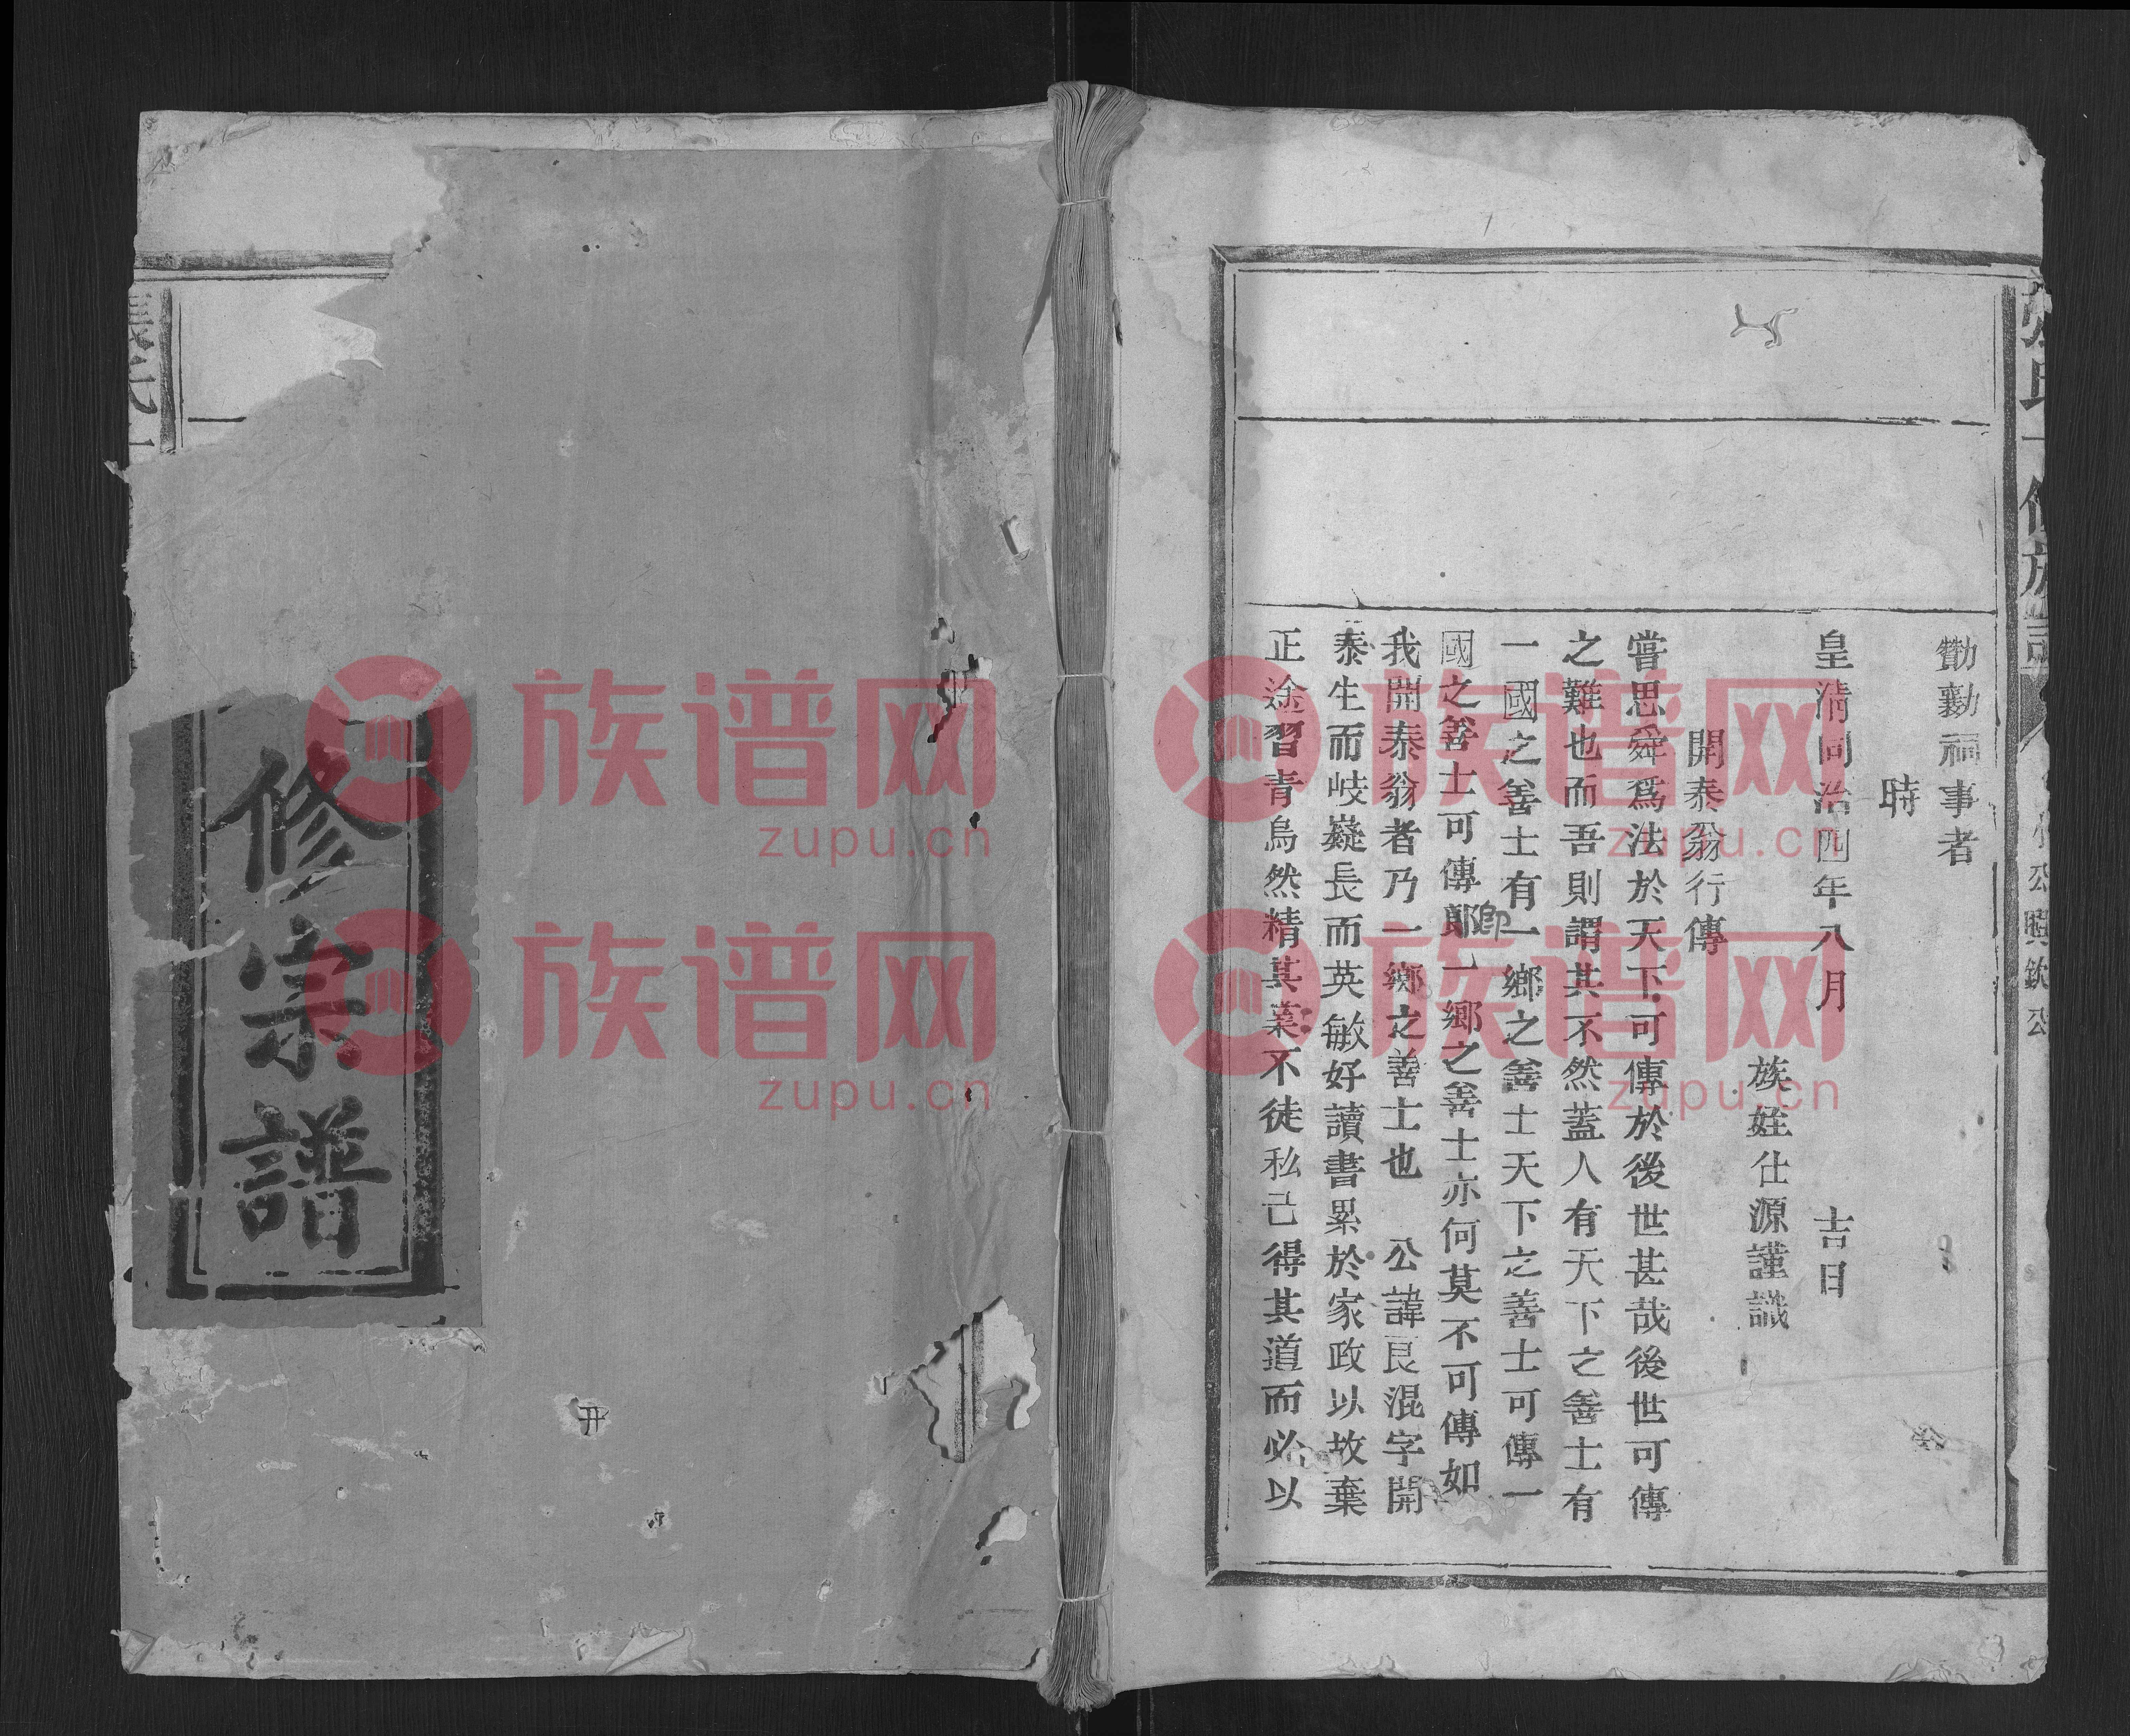 勷勷祠事者
時
皇淸同治四年八月 吉日
族姪仕源謹識
開泰翁行傳
嘗思舜爲法於天下可傳於後世甚哉後世可傳
之難也而吾則謂其不然蓋人有天下之善士有
一國之善士有一鄉之善士天下之善士可傳一
國之善士可傳卽一鄉之善士亦何莫不可傳如
我開泰翁者乃一鄉之善士也 公諱良混字開
泰生而岐嶷長而英敏好讀書累於家政以故棄
正途習青烏然精其業不徒私己得其道而必以
公興欽公
修宗譜
族谱网
zupu.cn
族谱网
zupu.cn
族谱网
zupu.cn
族谱网
zupu.cn